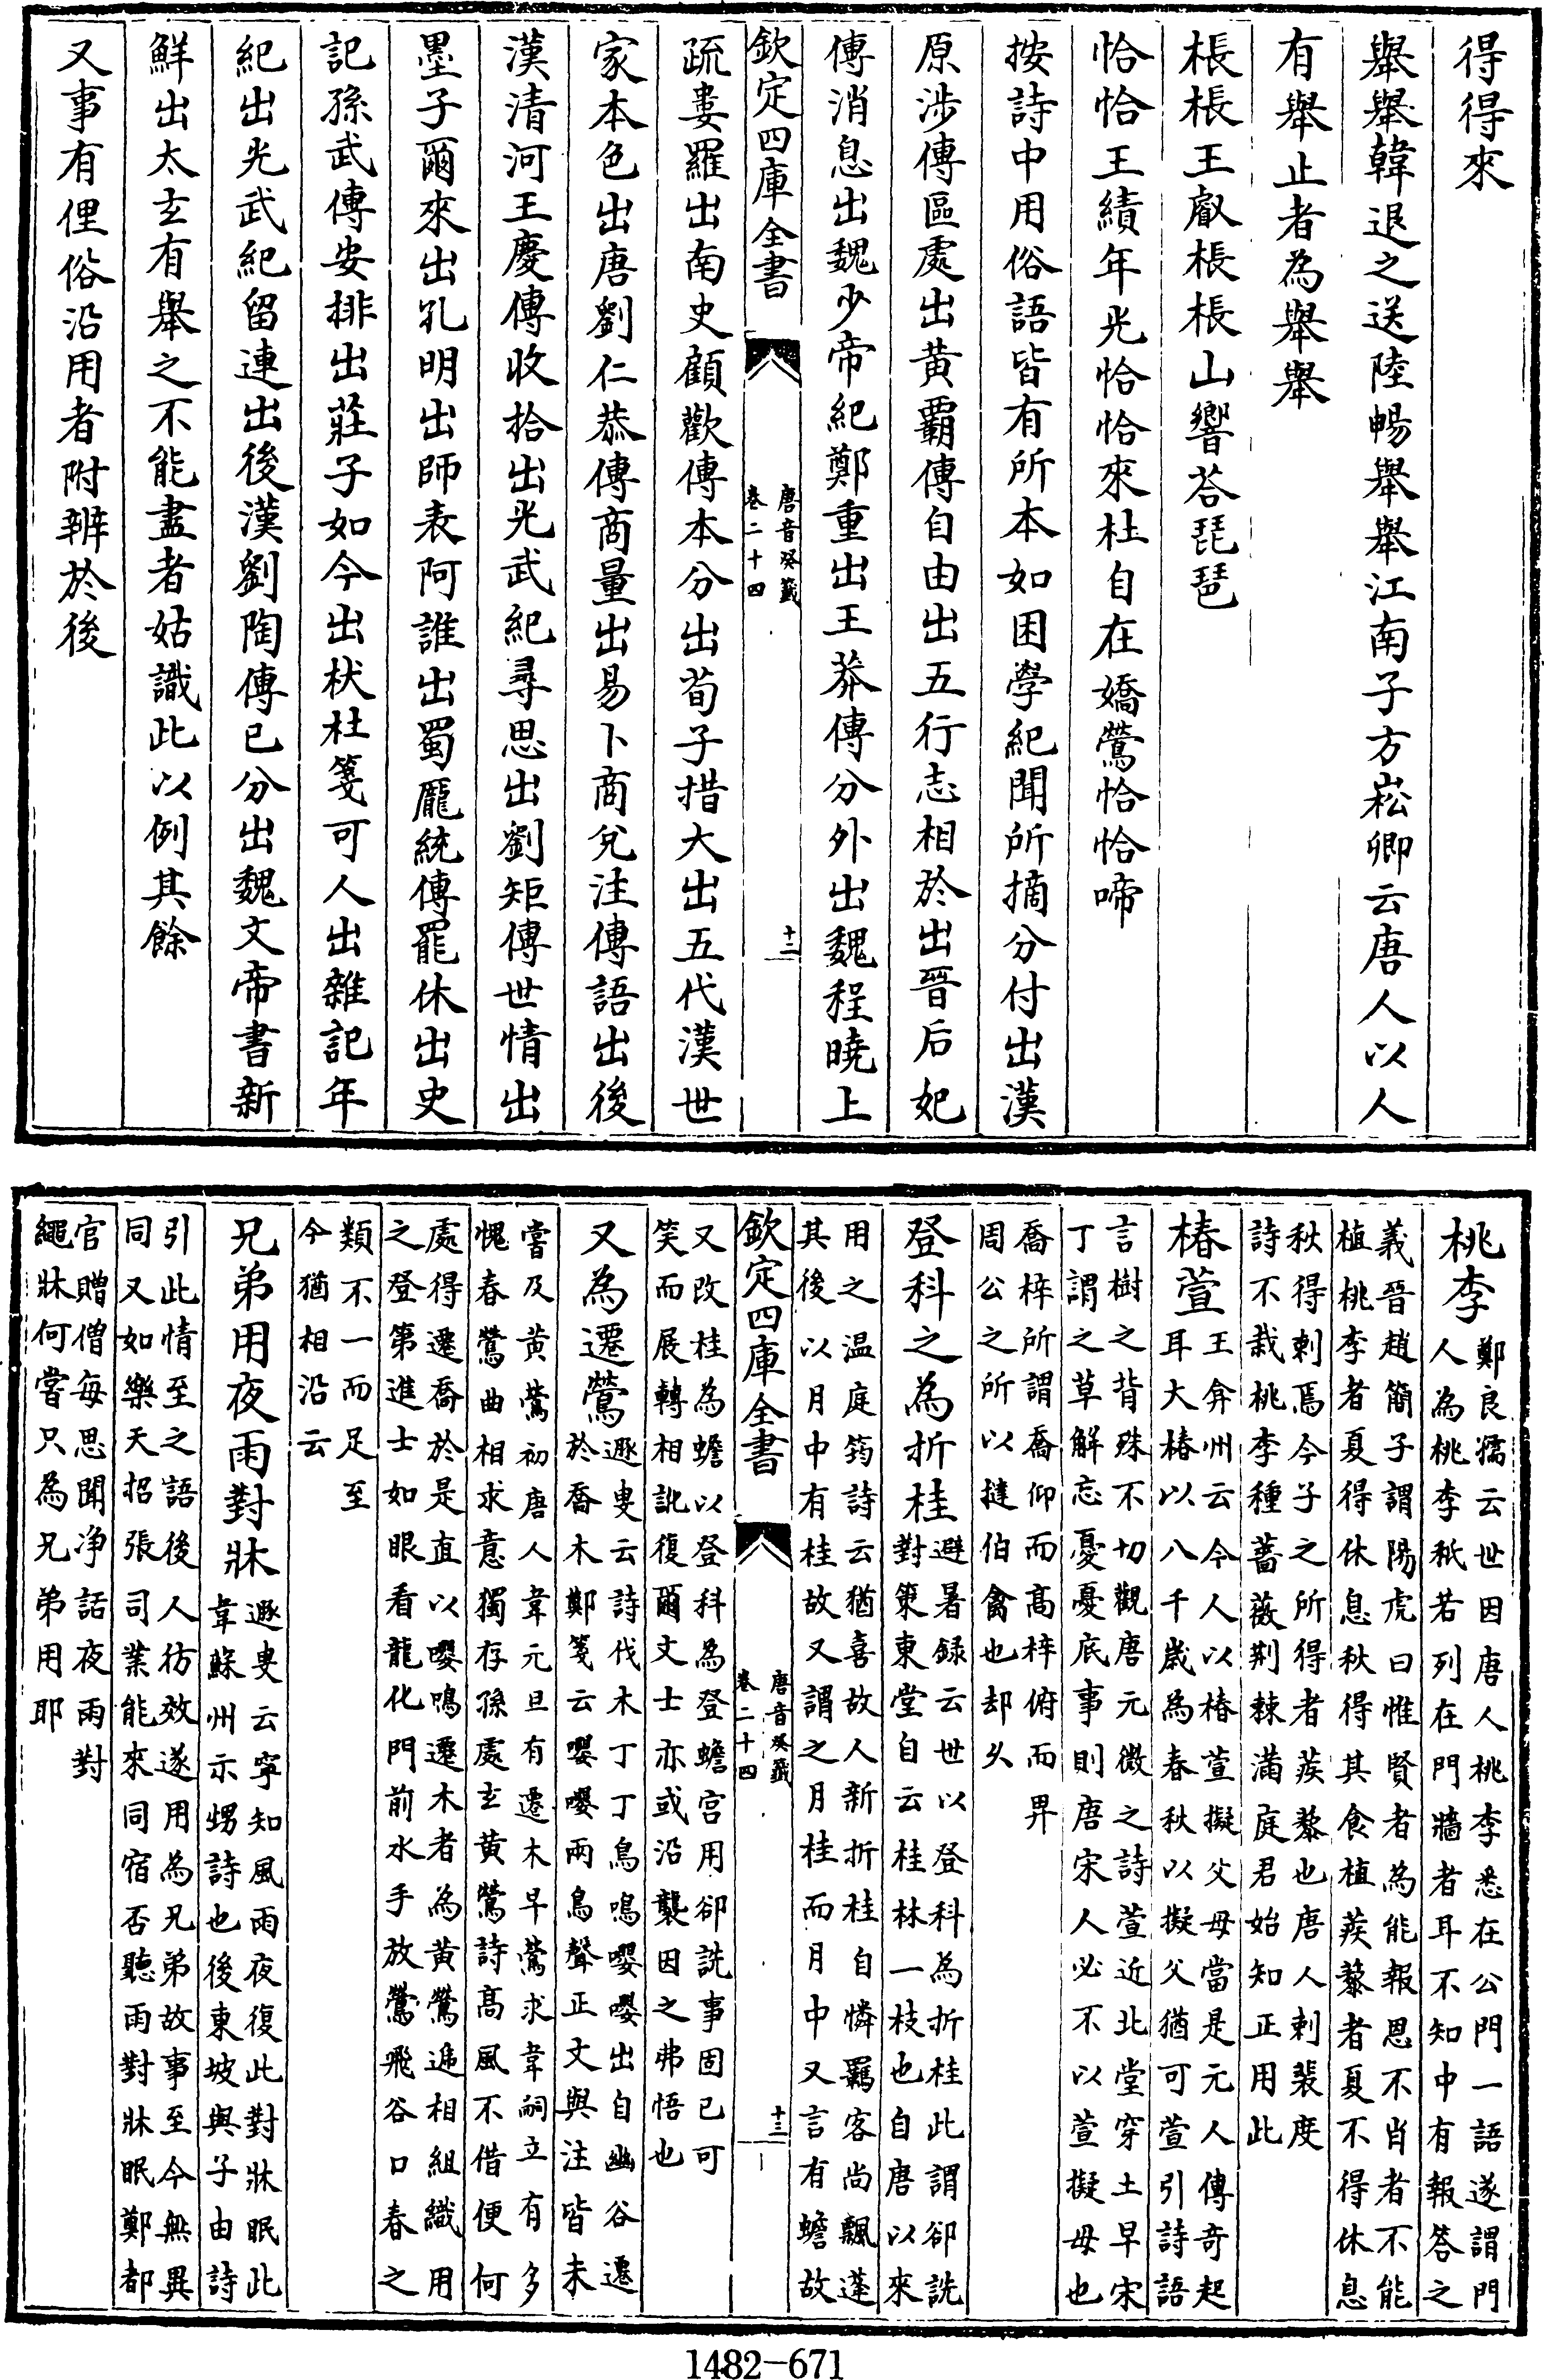 得得來
舉舉韓退之送陸暢舉舉江南子方崧卿云唐人以人
有舉止者為舉舉
棖棖王叡棖棖山響荅琵琶
恰恰王績年光恰恰來杜自在嬌鶯恰恰啼
按詩中用俗語皆有所本如困學紀聞所摘分付出漢
原涉傳區處出黄霸傳自由出五行志相於出晉后妃
傳消息出魏少帝紀鄭重出王莽傳分外出魏程曉上
欽定四庫全書
唐音癸籖
卷二十四
十二
疏婁羅出南史顧歡傳本分出荀子措大出五代漢世
家本色出唐劉仁恭傳商量出易卜商兌注傳語出後
漢清河王慶傳收拾出光武紀尋思出劉矩傳世情出
墨子爾來出孔明出師表阿誰出蜀龎統傳罷休出史
記孫武傳安排出莊子如今出杕杜箋可人出雜記年
紀出光武紀留連出後漢劉陶傳已分出魏文帝書新
鮮出太玄有舉之不能盡者姑識此以例其餘
又事有俚俗沿用者附辨於後
桃李
鄭良孺云世因唐人桃李悉在公門一語遂謂門
人為桃李秖若列在門牆者耳不知中有報答之
義晉趙簡子謂陽虎曰惟賢者為能報思不肖者不能
植桃李者夏得休息秋得其食植蒺藜者夏不得休息
秋得刺焉今子之所得者蒺藜也唐人刺裴度
詩不栽桃李種薔薇荆棘滿庭君始知正用此
椿萱
王弇州云今人以椿萱擬父母當是元人傳奇起
耳大椿以八千歳為春秋以擬父猶可萱引詩語
言樹之背殊不切觀唐元微之詩萱近北堂穿土早宋
丁謂之草解忘憂憂底事則唐宋人必不以萱擬母也
喬梓所謂喬仰而高梓俯而畀
周公之所以撻伯禽也却乆
登科之為折桂
避暑録云世以登科為折桂此謂卻詵
對策東堂自云桂林一枝也自唐以來
用之温庭筠詩云猶喜故人新折桂自憐羈客尚飄蓬
其後以月中有桂故又謂之月桂而月中又言有蟾故
欽定四庫全書
唐音癸籖
卷二十四
十三
又改桂為蟾以登科為登蟾宫用卻詵事固已可
笑而展轉相訛復爾文士亦或沿襲因之弗悟也
又為遷鶯
遯叟云詩伐木丁丁鳥鳴嚶嚶出自幽谷遷
於喬木鄭箋云嚶嚶兩鳥聲正文與注皆未
嘗及黄鶯初唐人韋元旦有遷木早鶯求韋嗣立有多
愧春鶯曲相求意獨存孫處玄黄鶯詩高風不借便何
處得遷喬於是直以嚶鳴遷木者為黄鶯逓相組織用
之登第進士如眼看龍化門前水手放鶯飛谷口春之
類不一而足至
今猶相沿云
兄弟用夜雨對牀
遯叟云寧知風雨夜復此對牀眠此
韋蘇州示甥詩也後東坡與子由詩
引此情至之語後人彷效遂用為兄弟故事至今無異
同又如樂天招張司業能來同宿否聽雨對牀眠鄭都
官贈僧每思聞净話夜雨對
繩牀何嘗只為兄弟用耶
1482-671